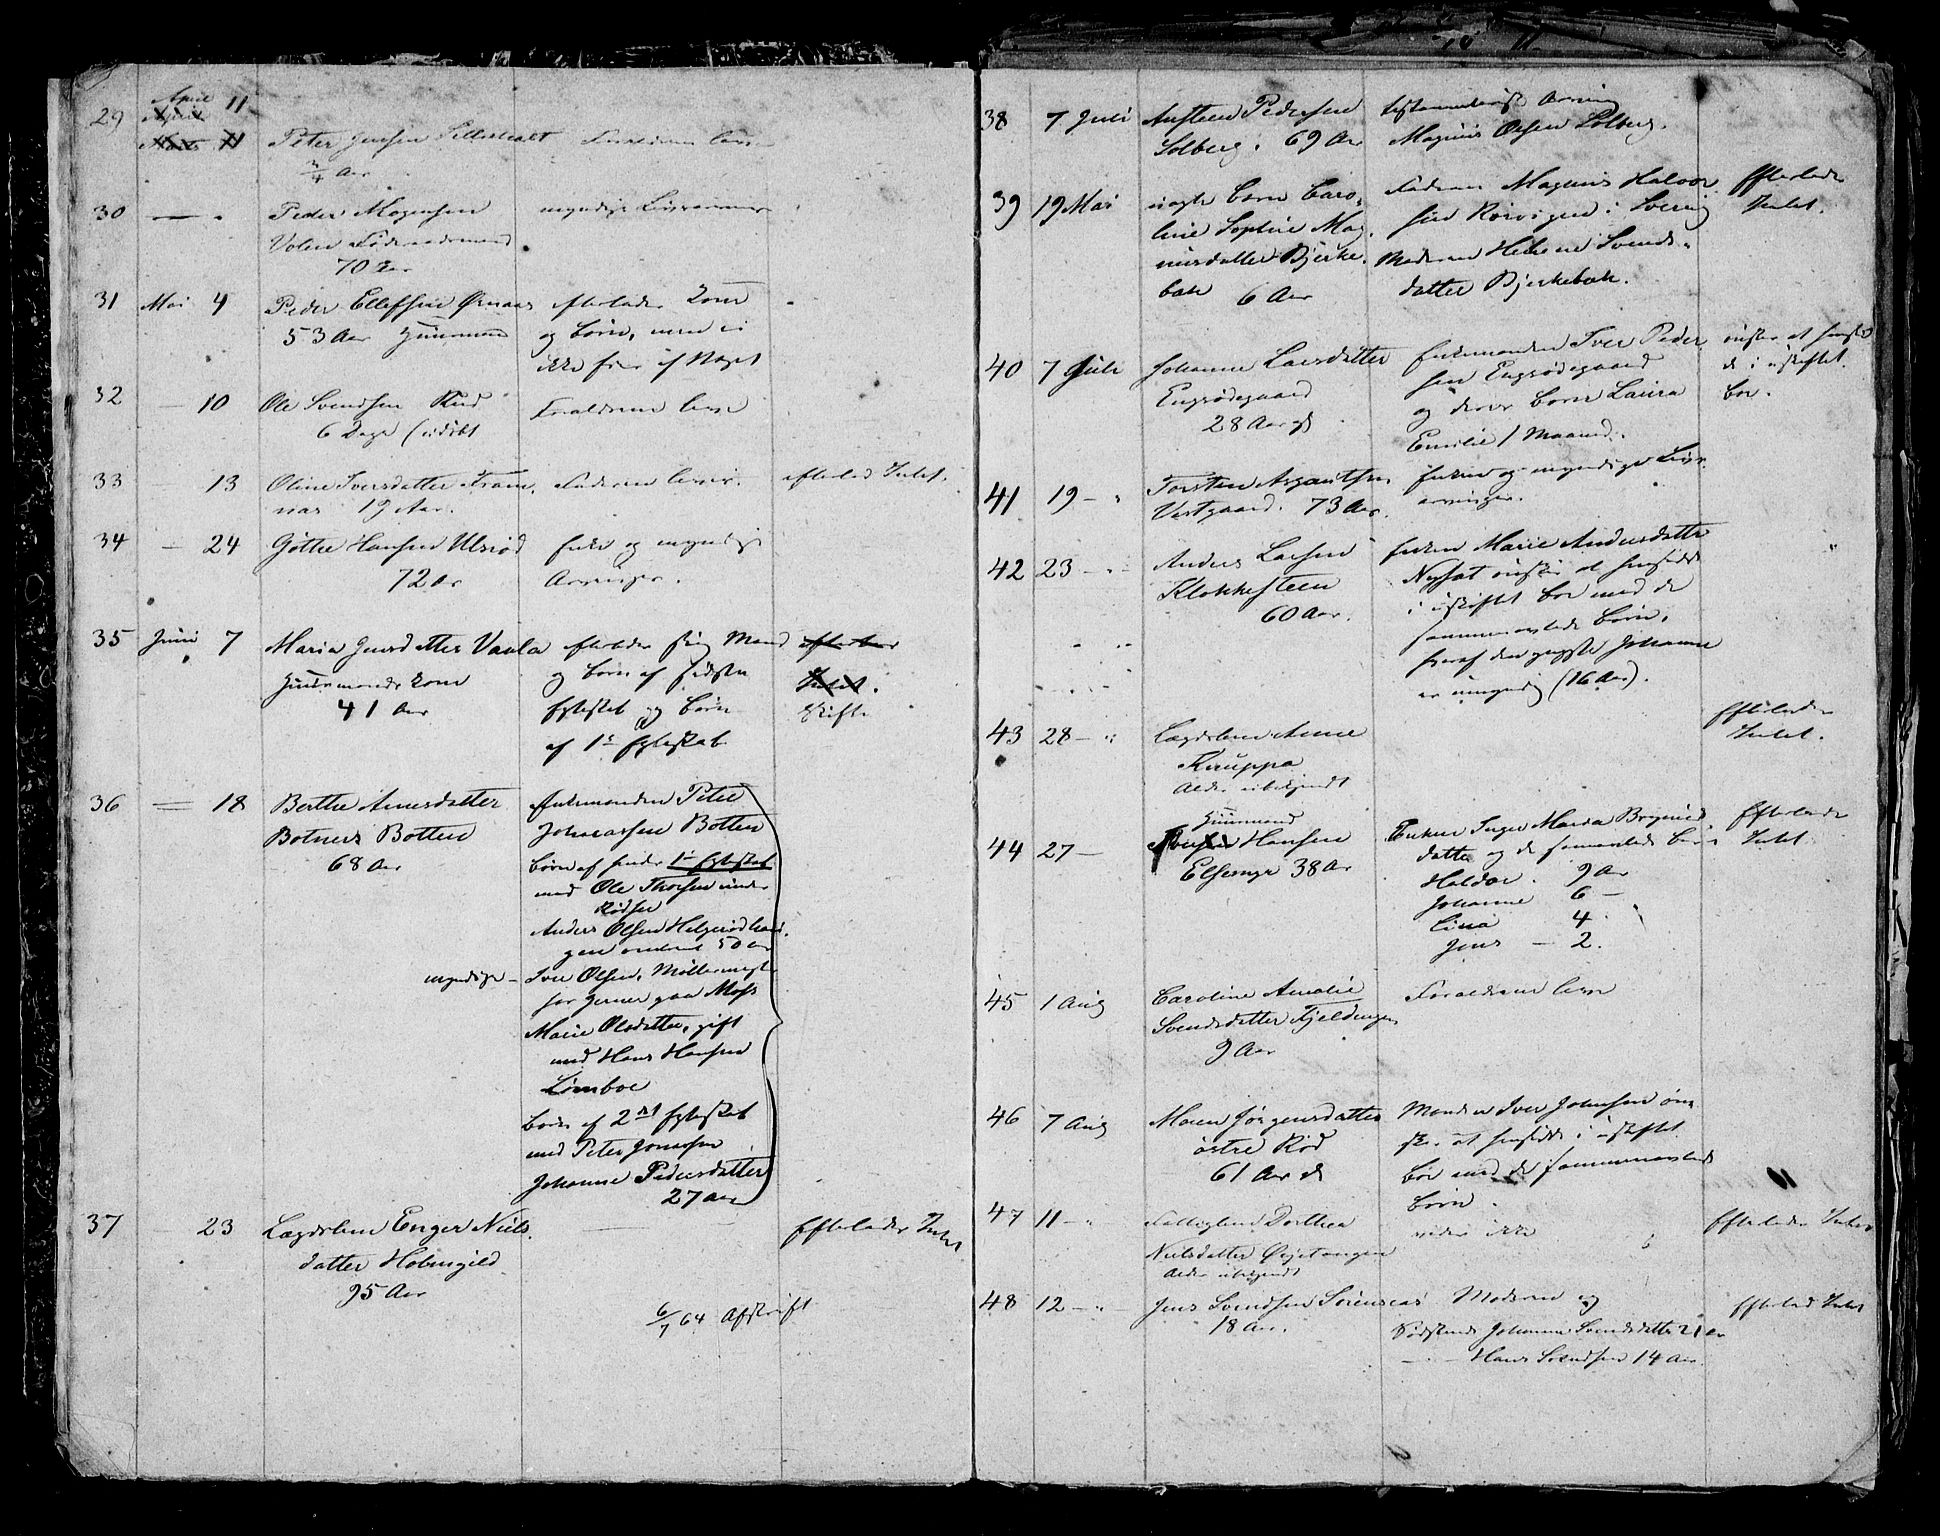 29 April 11
Peter Jensen
3/4 Aar
Forældrene lever
30 — "
Peder Mogensen
Volen Føderaadsmand
70 Aar
myndige Livsarvinger
31 Mai 4
Peder Ellefsen Ørnaas
53 Aar Huusmand
efterlader Kone
og Børn, men ei
ikke Spor af Noget
32 — 10
Ole Svendsen Rud
6 Dage (udøbt
Forældrene lever
33 — 13
Oline Iversdatter Fram
næs 19 Aar.
Faderen lever.
efterlod Intet.
34 — 24
Gøthe Hansen Ulsrød
72 Ar
Enke og myndige
Arvinger.
35 Juni 7
Maria Jensdatter Vaula
Huusmands Kone
41 Aar
efterlader sig Mand
og Børn af sidste
Egteskab og Børn
af 1e Egteskab
efterlader
Intet.
Skifte
36 — 18
Berthe Arnesdatter
Botners Botten
68 Aar
Enkemanden Peter
Johnassen Botten
Børn af hendes 1e Egteskab
med Ole Thorsen under
Rødsen
Anders Olsen Helgerød hau
gen omtrent 50 Aar
myndige — Iver Olsen, Møllermester
hos Gerner paa Moss
Marie Olsdatter, gift
med Hans Hansen
Lømboe
Børn af 2det Egteskab
med Peter Jonassen
Johanne Pedersdatter
27 Aar
37 — 23
Lægdslem Enger Niels
datter Holmegild
95 Aar
Efterlader Intet
6/7 64 Afskrift
38 7 Juli
Austeen Pedersen
Solberg. 69 Aar
testamentarisk Arving
Magnus Olsen Solberg.
39 19 Mai
uægte Barn Caro-
line Sophie Mag-
nusdatter Bjerke-
bæk 6 Aar
Faderen Magnus Halvor
sen Rørvigen i Sverig
Moderen Helene Svends-
datter Bjerkebæk.
Efterlader
Intet.
40 7 Juli
Johanne Larsdatter
Engsødegaard
28 Aar gl
Enkemanden Iver Peder
sen Engsødegaard
og deres Barn Laura
Emilie 1 Maaned.
ønsker at hensid
de i uskiftet
Bo.
41 19 — "
Torsten Asgautsen
Vestgaard. 73 Aar.
Enke og myndige Livs-
arvinger.
42 23 — "
Anders Larsen
Klokkesteen
60 Aar.
Enken Marie Andersdatter
ønsker at hensidde
i uskiftet Bo med de
sammenavlede Børn,
hvoraf den yngste Johanne
er umyndig (16 Aar).
43 28 — "
Lægdslem Anne
Knuppa
Alder ubekjendt
Efterlader
Intet.
44 27 —
Huusmand
Hansen
Elsemyr 38 Ar
Enken Inger Maria Brynild
datter og de samavlede Børn
Haldor. 9 Ar
Johanne 6 —
Lina 4
Jens — 2.
Efterlader
Intet.
45 1 Aug
Caroline Amalie
Svendsdatter Fjeldengen
9 Aar
Forældrene lever
46 7 Aug
Maren Jørgensdatter
østre Rød
61 Aar gl
Manden Iver Johnsen øn
sker at hensidde i uskiftet
Bo med de sammenavlede
Børn.
47 11 — "
Fattiglem Dorthea
Nielsdatter Øvjetangen
Alder ubekjendt
vides ikke
Efterlader Intet
48 12 — "
Jens Svendsen Sørensaas
18 Aar.
Moderen og
Sødskende Johanne Svendsdatter 21 Ar
— Hans Svendsen 14 Aar
Efterlod Intet